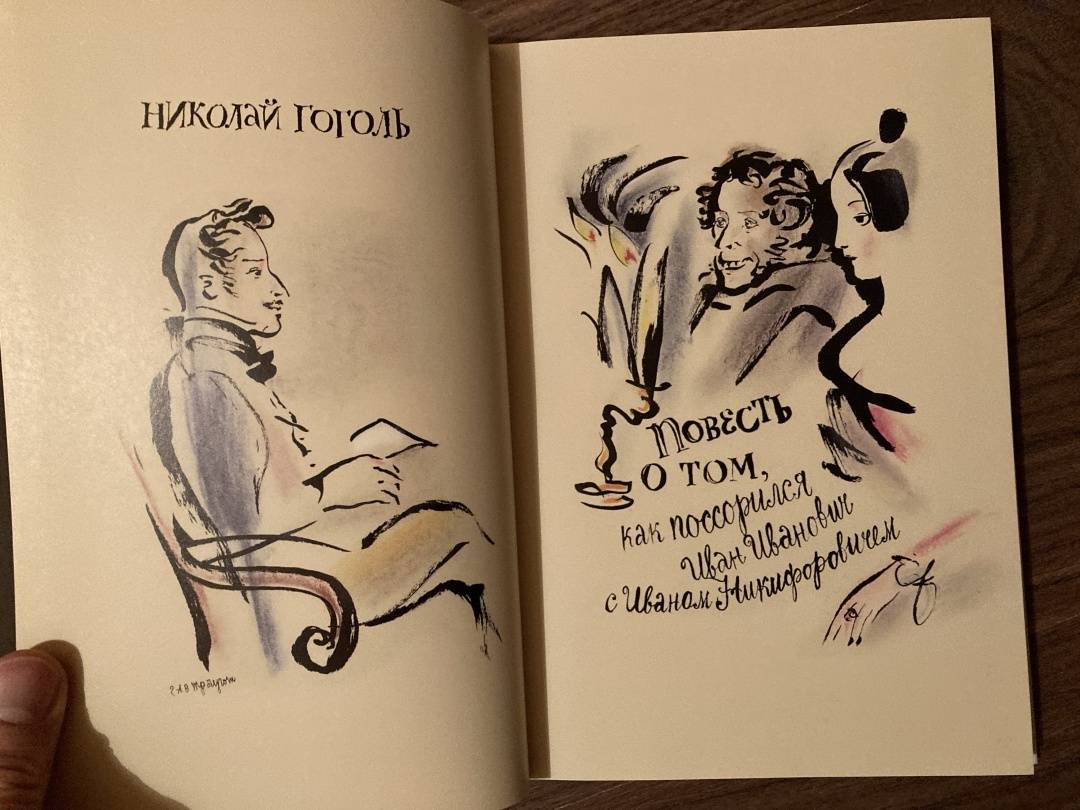 НИКОЛАЙ ГОГОЛЬ
Г.А.В ТРАУГОТ
ПОВЕСТЬ
О ТОМ,
как поссорился
Иван Иванович
с Иваном Никифоровичем